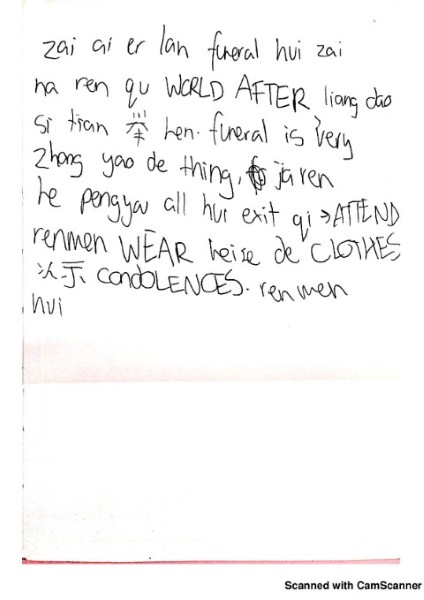 zai ai er lan funeral hui zai
na ren qu WORLD AFTER liang dao
si tian 举 hen. funeral is very
zhong yao de thing, jia ren
he pengyou all hui exit qi → ATTEND
renmen WEAR heise de CLOTHES
示 CONDOLENCES. renmen
hui
Scanned with CamScanner